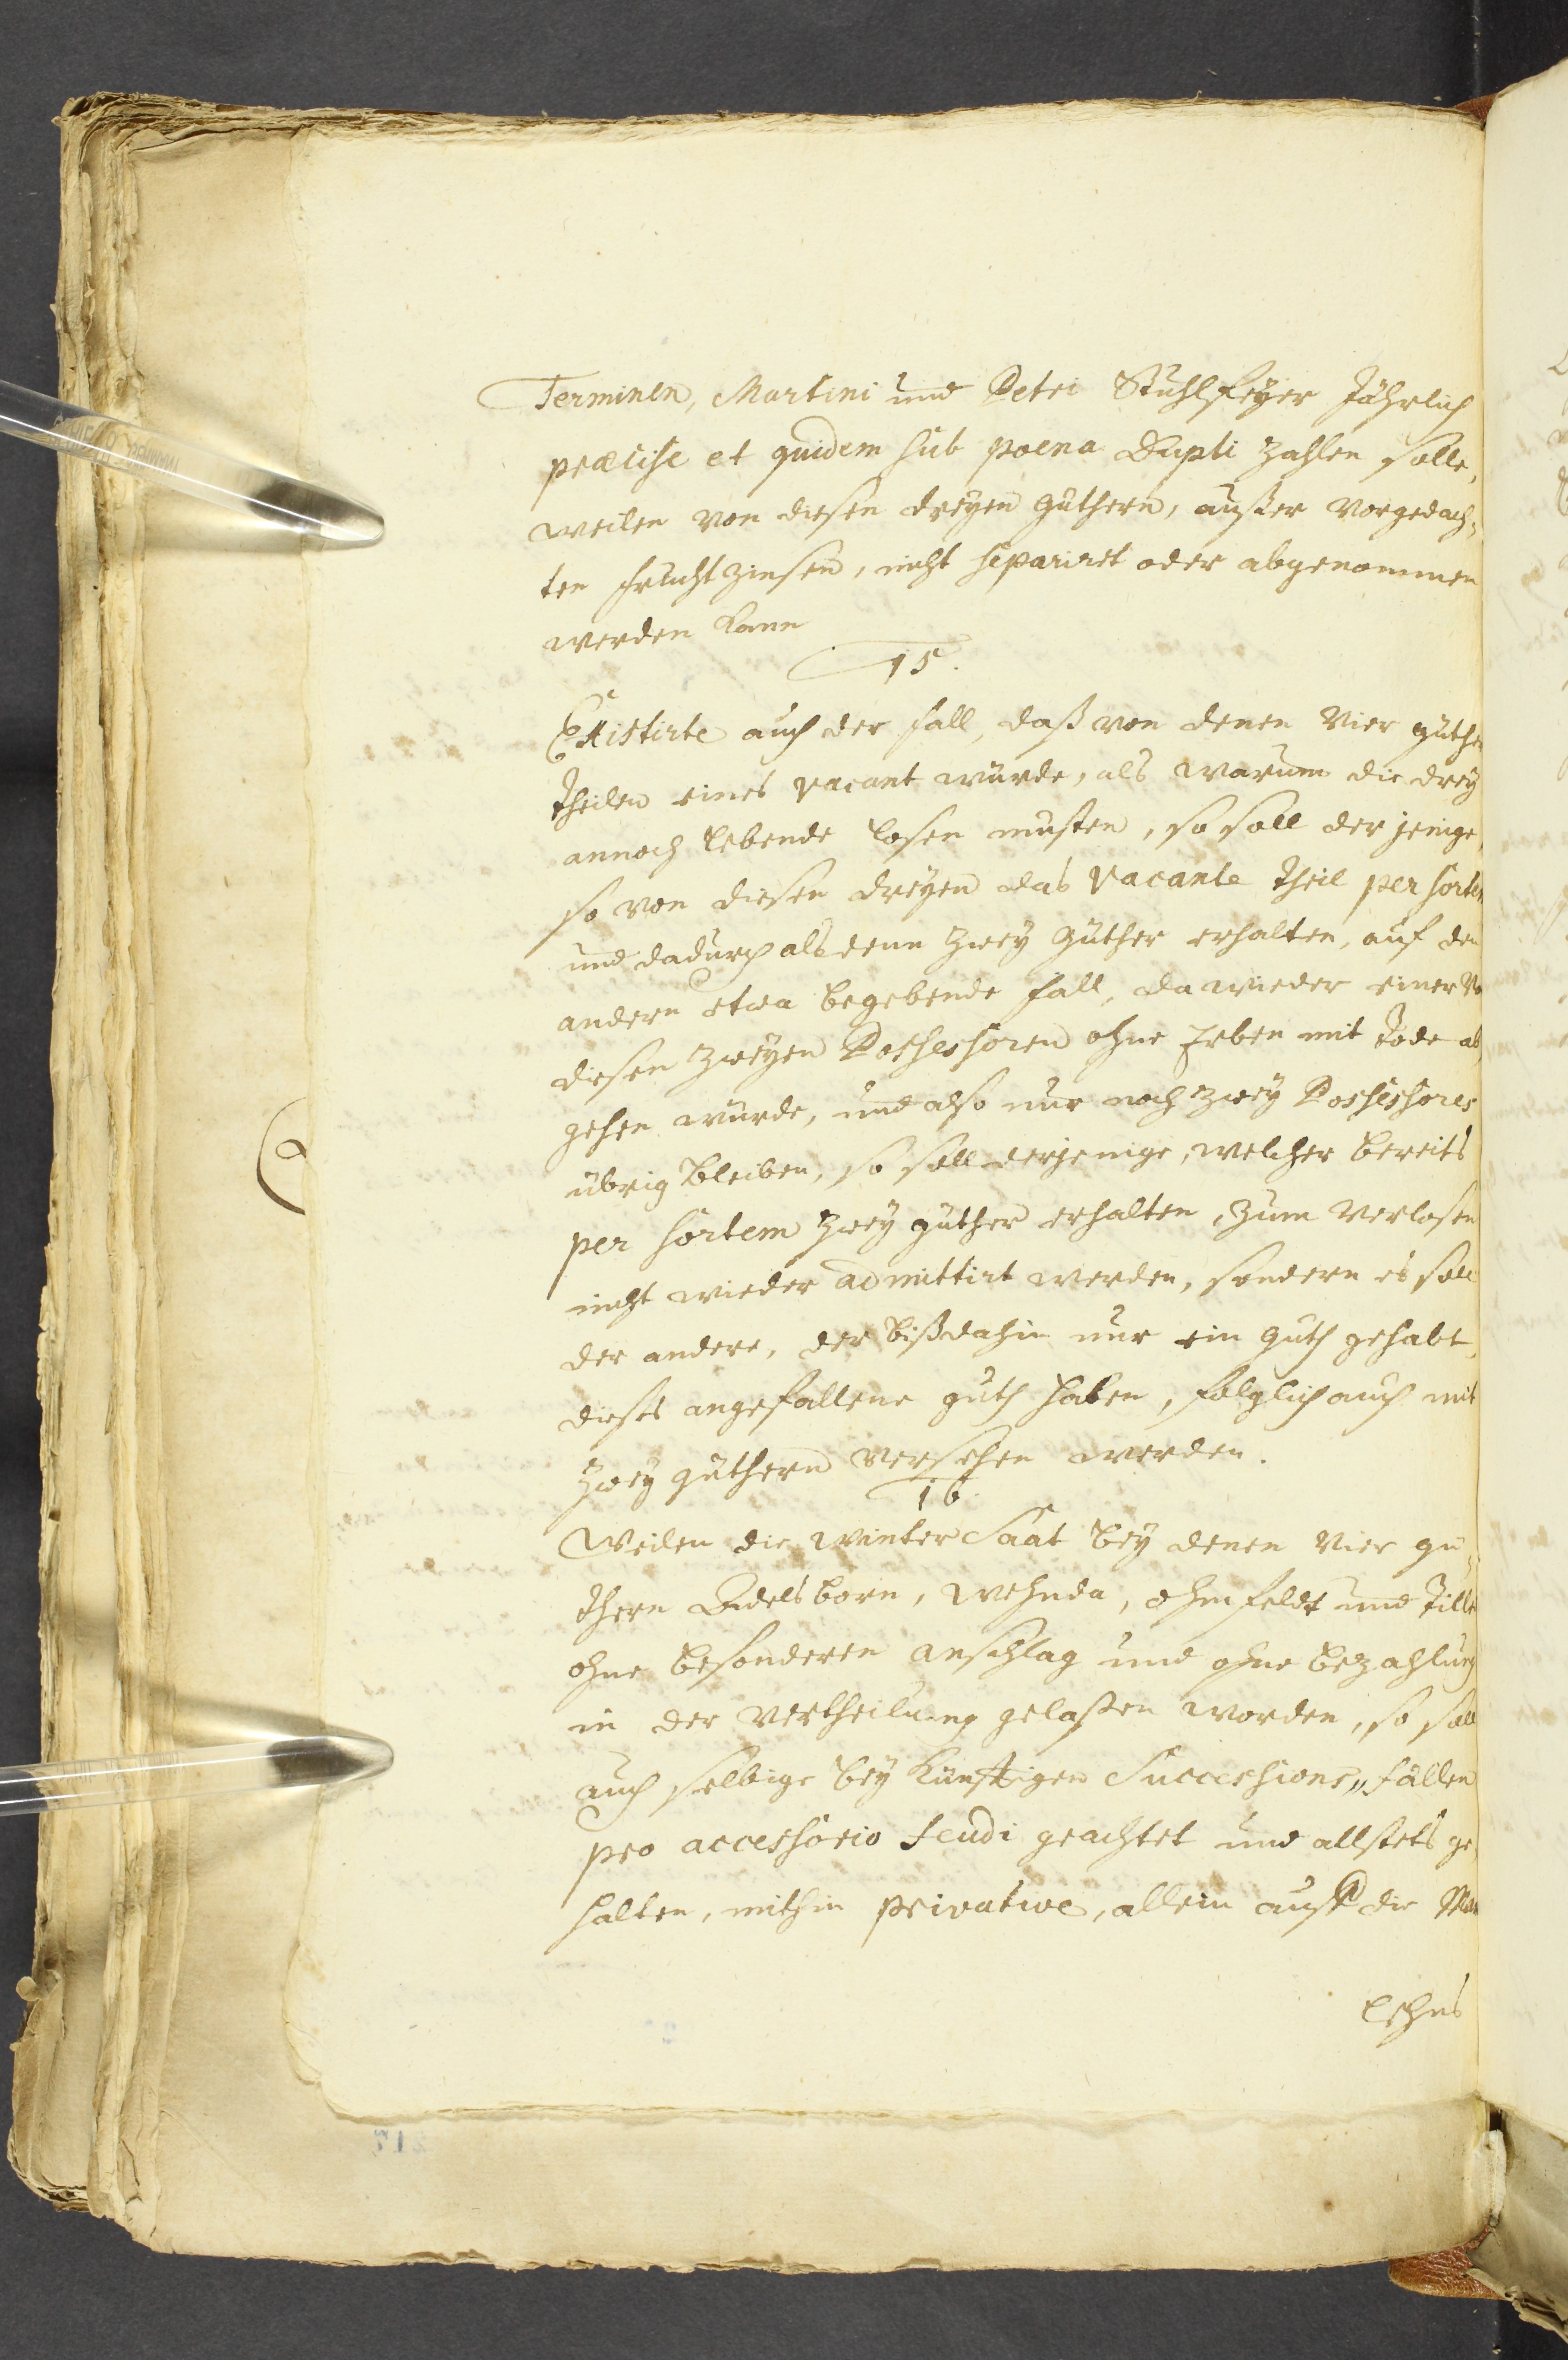 Terminen, Martini und Petri Stuhlfeyer Jährlich
præcise et quidem sub poena Dupli zahlen solle,
weilen von diesen dreyen güthern, außer vorgedach,,
ten frucht zinsen, nicht separiret oder abgenommen
werden kann
15.
Existirte auch der fall, daß von denen Vier güther
theilen eines vacant würde, als warum die drey
annoch lebende losen musten, so soll derjenige,
so von diesen dreyen das vacante theil per sortem
und dadurch alsdenn zwey Güther erhalten, auf den
andern etwa begebende fall, da wieder einer von
diesen zweyen Possessoren ohne Erben mit Tode ab
gehen würde, und also nur noch zwey Possessores
übrig bleiben, so soll derjenige, welcher bereits
per sortem zwey güther erhalten, zum verlosen
nicht wieder admittirt werden, sondern es soll
der andere, der bißdahin nur ein Guth gehabt,
dieses angefallene guth haben, folglich auch mit
zwey güthern versehen werden.
16
Weilen die winter Saat bey denen Vier gü,,
thern Adelsborn, Wehnda, ohmfeldt und
ohne besonderen anschlag und ohne bezahlung
in der vertheilung gelaßen worden, so soll
auch selbige bey künftigen Successions,, fällen
pro accessorio feudi geachtet und allstets ge
halten, mithin privative, allein auf die Man
Lehns
217